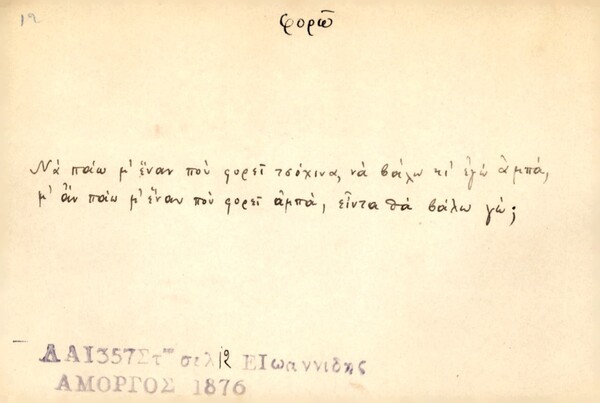 12
φορῶ
Νά πάω μ' ἕναν πού φορεῖ τσόχινα, νά βάλω κι' ἐγώ ἀμπά,
μ' ἄν πάω μ' ἕναν πού φορεῖ ἀμπά, εἶντα θά βάλω γώ;
ΛΑΙ357Στ σελ 12 ΕΙωαννιδης
ΑΜΟΡΓΟΣ 1876